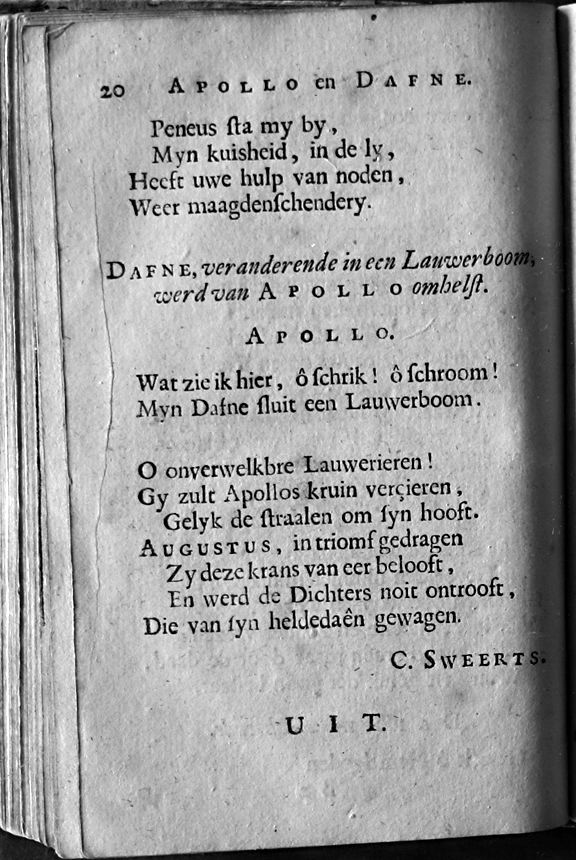 20 APOLLO en DAFNE.
Peneus ſta my by,
Myn kuisheid, in de ly,
Heeft uwe hulp van noden,
Weer maagdenſchendery.
DAFNE, veranderende in een Lauwerboom,
werd van APOLLO omhelſt.
APOLLO.
Wat zie ik hier, ô ſchrik! ô ſchroom!
Myn Dafne ſluit een Lauwerboom.
O onverwelkbre Lauwerieren!
Gy zult Apollos kruin verçieren,
Gelyk de ſtraalen om ſyn hooft.
AUGUSTUS, in triomf gedragen
Zy deze krans van eer belooft,
En werd de Dichters noit ontrooft,
Die van ſyn heldedaên gewagen.
C. SWEERTS.
UIT.